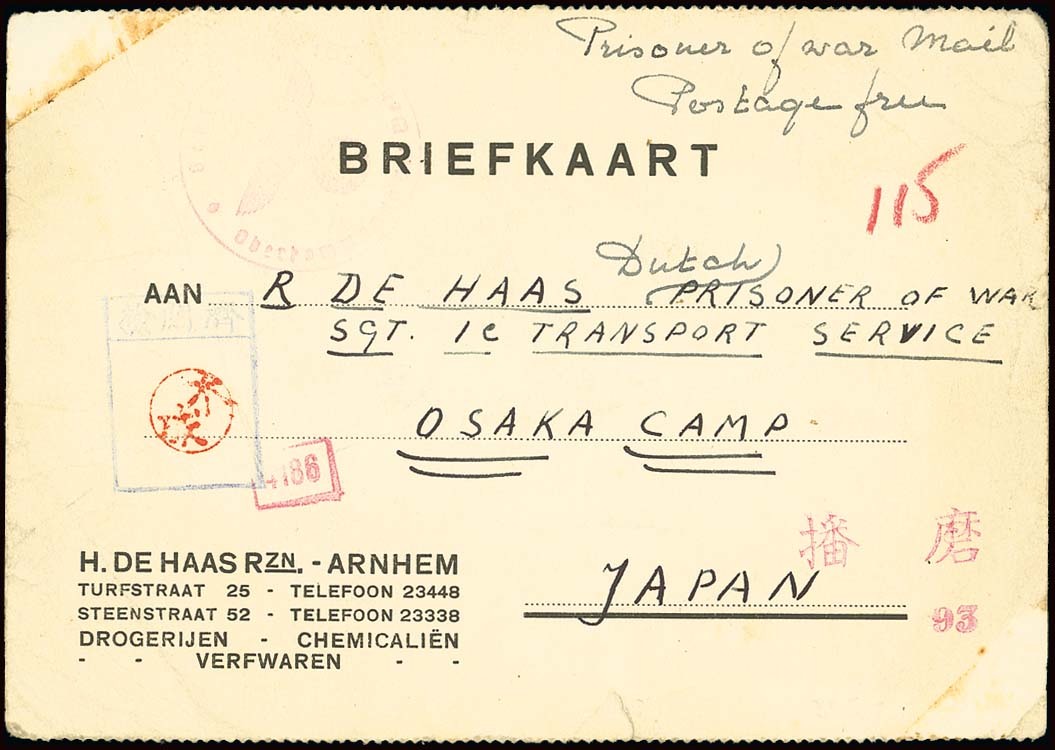 Prisoner of war Mail
Postage free
BRIEFKAART
115
Dutch
AAN R DE HAAS PRISONER OF WAR
SGT. 1e TRANSPORT SERVICE
OSAKA CAMP
4186
播磨
93
JAPAN
H. DE HAAS RZN. - ARNHEM
TURFSTRAAT 25 - TELEFOON 23448
STEENSTRAAT 52 - TELEFOON 23338
DROGERIJEN - CHEMICALIËN
- - VERFWAREN - -